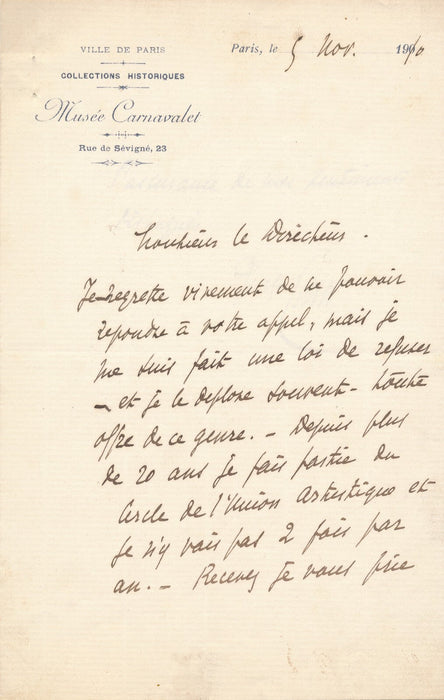 VILLE DE PARIS
COLLECTIONS HISTORIQUES
Musée Carnavalet
Rue de Sévigné, 23
Paris, le 5 Nov. 1910
Monsieur le Directeur.
Je regrette vivement de ne pouvoir
repondre à votre appel, mais je
me suis fait une loi de refuser
– et je le deplore souvent – toute
offre de ce genre. – Depuis plus
de 20 ans je fais partie du
Cercle de l'Union Artistique et
je n'y vais pas 2 fois par
an. – Recevez je vous prie